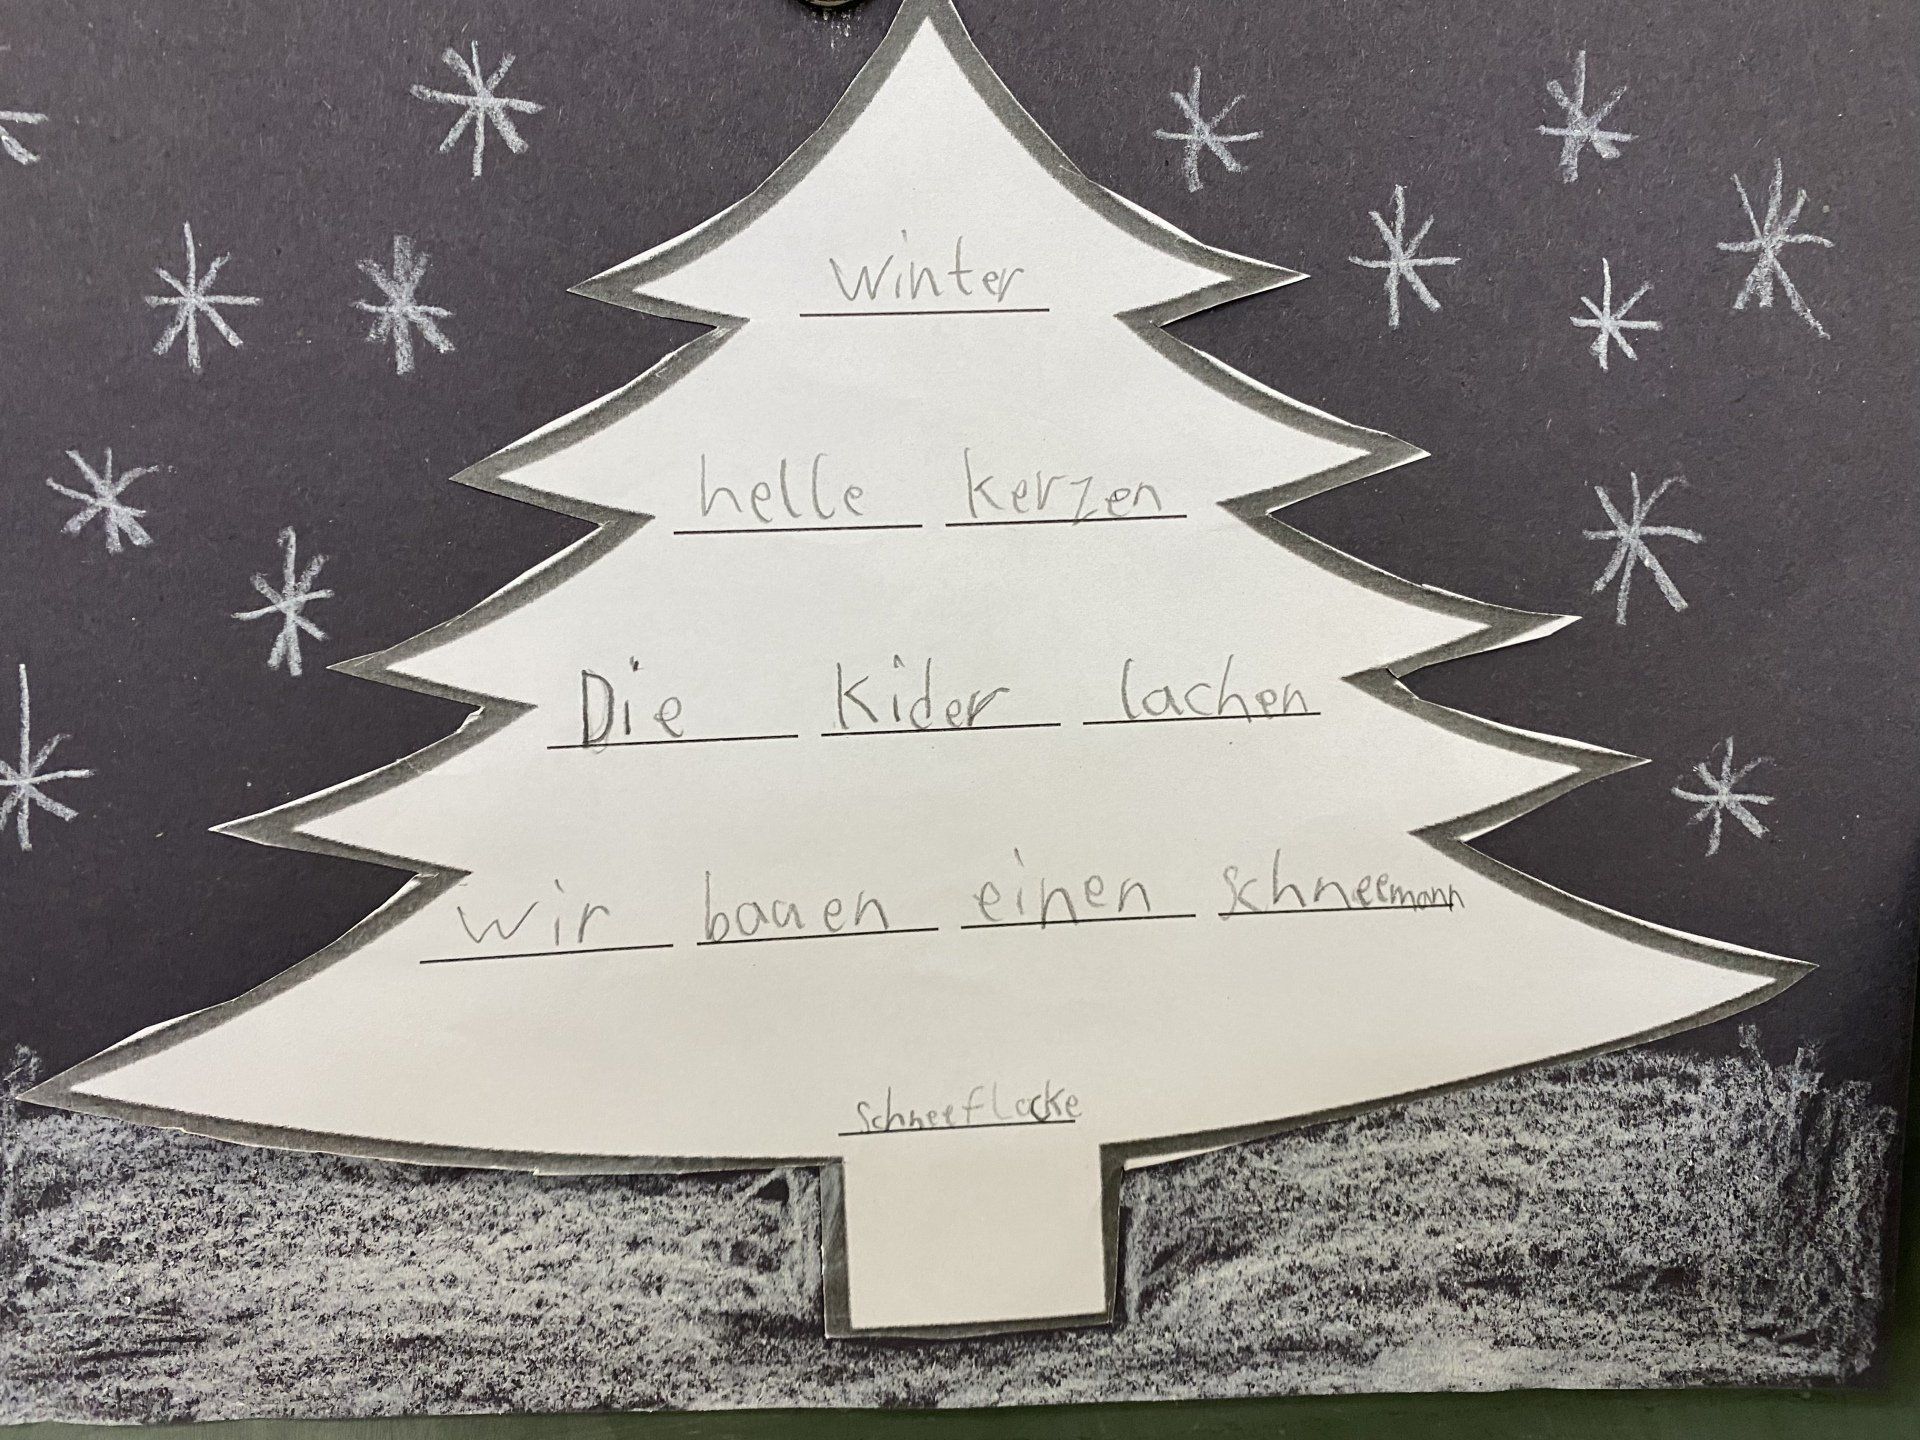 Winter
helle kerzen
Die Kider lachen
Wir bauen einen schneemann
schneeflocke